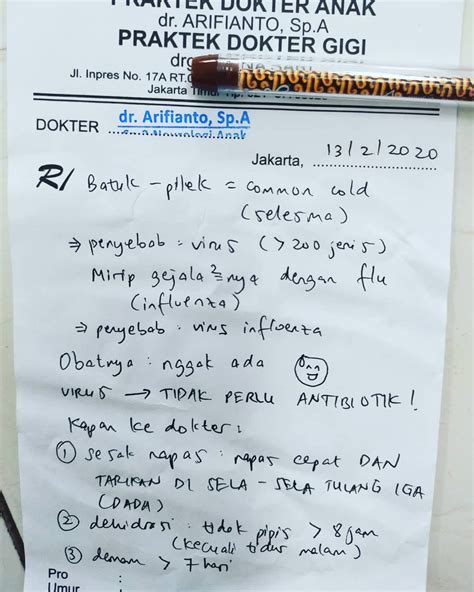 PRAKTEK DOKTER ANAK
dr. ARIFIANTO, Sp.A
PRAKTEK DOKTER GIGI
drg
Jl. Inpres No. 17A RT.0
Jakarta Timur
DOKTER dr. Arifianto, Sp.A
Jakarta, 13/2/2020
R/ Batuk - pilek = common cold
(selesma)
⇒ penyebab : virus (> 200 jenis)
Mirip gejala²nya dengan flu
(influenza)
⇒ penyebab : virus influenza
Obatnya : nggak ada
VIRUS → TIDAK PERLU ANTIBIOTIK!
Kapan ke dokter :
① sesak napas : napas cepat DAN
TARIKAN DI SELA - SELA TULANG IGA
(DADA)
② dehidrasi : tidak pipis > 8 jam
(kecuali tidur malam)
③ demam > 7 hari
Pro :
Umur :